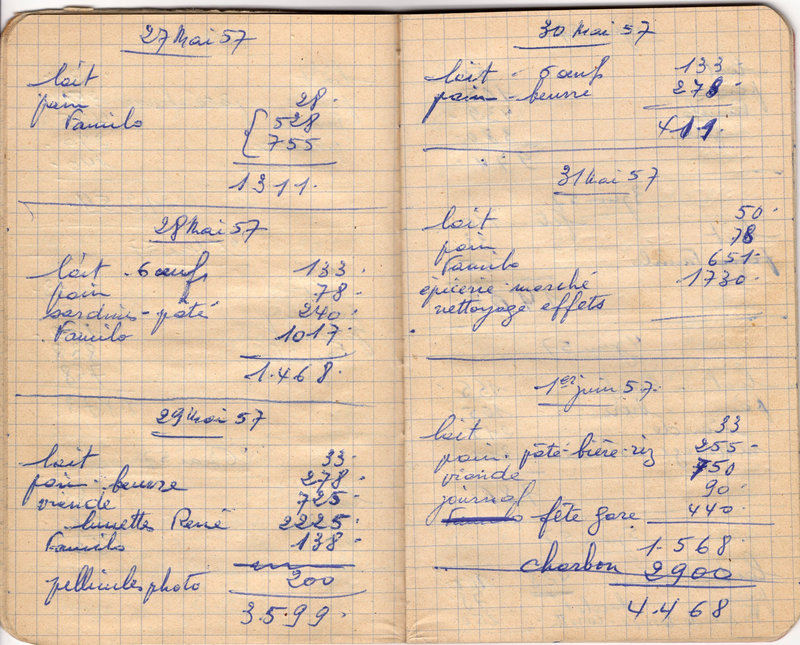 27 Mai 57
lait
pain 28.
Familo { 528
755
1311.
28 Mai 57
lait - 6 œufs 133
pain 78.
sardines - pâté 240
Familo 1017.
1.468.
29 Mai 57
lait 33.
pain - beurre 278.
viande 725.
lunettes René 2225.
Familo 138.
pellicules photo 200
3.5.99.
30 Mai 57
lait - 6 œufs 133
pain - beurre 278
411.
31 Mai 57
lait 50.
pain 78
Familo 651.
épicerie marché 1730.
nettoyage effets
1er juin 57.
lait 33
pain - pâté - bière - riz 255.
viande 750
journal 90.
fête gare 440
1.568.
charbon 2900
4.468